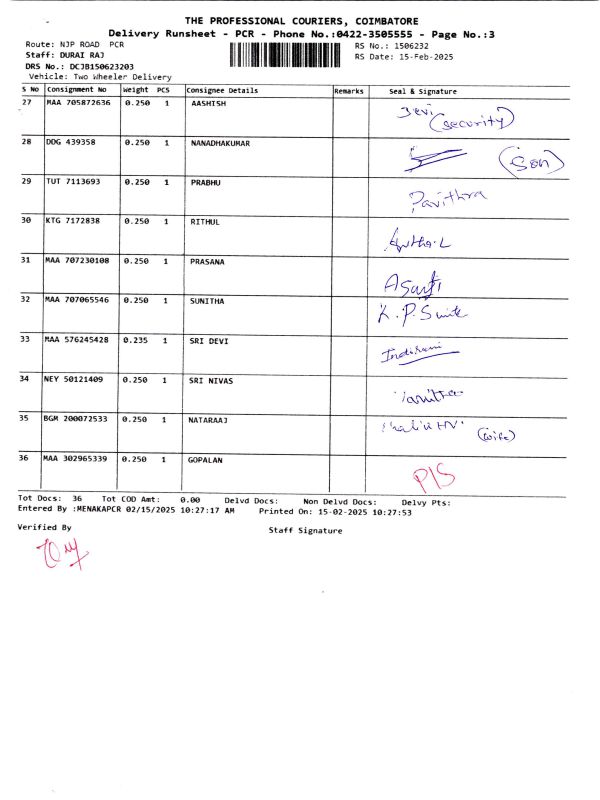 THE PROFESSIONAL COURIERS, COIMBATORE
Delivery Runsheet - PCR - Phone No.:0422-3505555 - Page No.:3
Route: NJP ROAD PCR RS No.: 1506232
Staff: DURAI RAJ RS Date: 15-Feb-2025
DRS No.: DCJB150623203
Vehicle: Two Wheeler Delivery
S No Consignment No Weight PCS Consignee Details Remarks Seal & Signature
27 MAA 705872636 0.250 1 AASHISH
Devi (security)
28 DDG 439358 0.250 1 NANADHAKUMAR
(Son)
29 TUT 7113693 0.250 1 PRABHU
Pavithra
30 KTG 7172838 0.250 1 RITHUL
31 MAA 707230108 0.250 1 PRASANA
32 MAA 707065546 0.250 1 SUNITHA
33 MAA 576245428 0.235 1 SRI DEVI
Indirani
34 NEY 50121409 0.250 1 SRI NIVAS
35 BGM 200072533 0.250 1 NATARAAJ
(wife)
36 MAA 302965339 0.250 1 GOPALAN
P/S
Tot Docs: 36 Tot COD Amt: 0.00 Delvd Docs: Non Delvd Docs: Delvy Pts:
Entered By :MENAKAPCR 02/15/2025 10:27:17 AM Printed On: 15-02-2025 10:27:53
Verified By Staff Signature